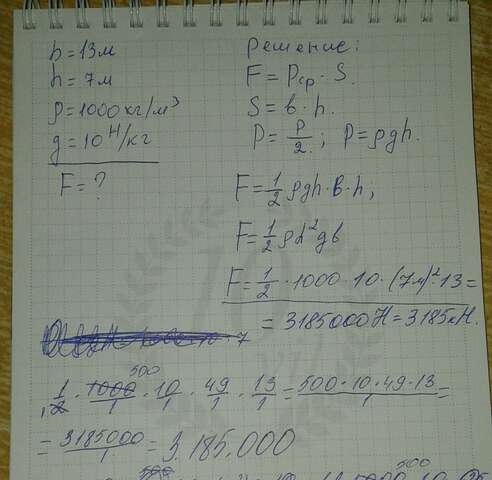 b = 13м
h = 7м
ρ = 1000 кг/м³
g = 10 Н/кг
F = ?
Решение:
F = Pср · S.
S = b · h.
P = P/2 ; P = ρgh.
F = 1/2 ρgh · b · h;
F = 1/2 ρh²gb
F = 1/2 · 1000 · 10 · (7м)² · 13 =
= 3185000 Н = 3185 кН.
500
1/2 · 1000/1 · 10/1 · 49/1 · 13/1 = 500·10·49·13/1 =
= 3185000/1 = 3.185.000